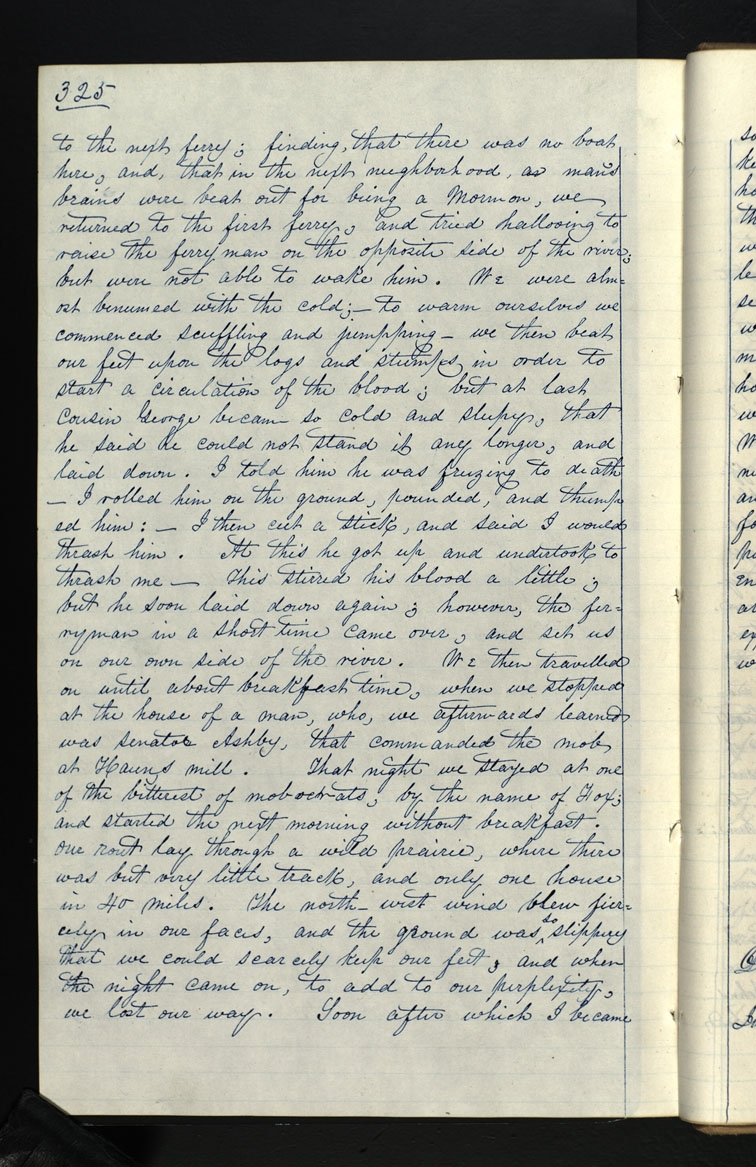 325
to the next ferry; finding, that there was no boat
here, and, that in the next neighborhood, as man's
brains were beat out for being a Mormon, we
returned to the first ferry, and tried hallooing to
raise the ferryman on the opposite side of the river;
but were not able to wake him. We were alm=
ost benumed with the cold;— to warm ourselves we
commenced scuffling and jumpping— we then beat
our feet upon the logs and stumps, in order to
start a circulation of the blood; but at last
cousin George becam so cold and sleepy, that
he said he could not stand it any longer, and
laid down. I told him he was freezing to death
— I rolled him on the ground, pounded, and thump
ed him:— I then cut a stick, and said I would
thrash him. At this he got up and undertook to
thrash me— This stirred his blood a little;
but he soon laid down again; however, the fer=
ryman in a short time came over, and set us
on our own side of the river. We then travelled
on until about breakfast time, when we stopped
at the house of a man, who, we afterwards learned
was senator Ashby, that commanded the mob
at Hauns mill. That night we stayed at one
of the bitterest of mobocrats, by the name of Fox;
and started the next morning without breakfast.
Our rout lay through a wild prairie, where there
was but very little track, and only one house
in 40 miles. The north-west wind blew fier=
cely in our faces, and the ground was so slippery
that we could scarcely keep our feet, and when
the night came on, to add to our perplexity,
we lost our way. Soon after which I became